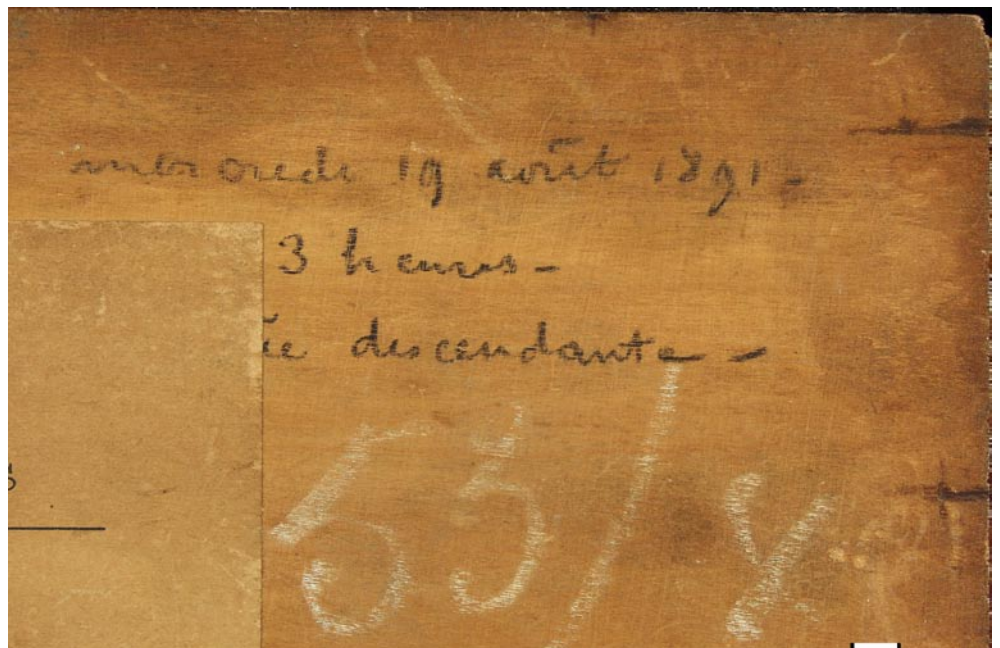 mercredi 19 août 1891 -
3 heures -
ée descendante -
53/8